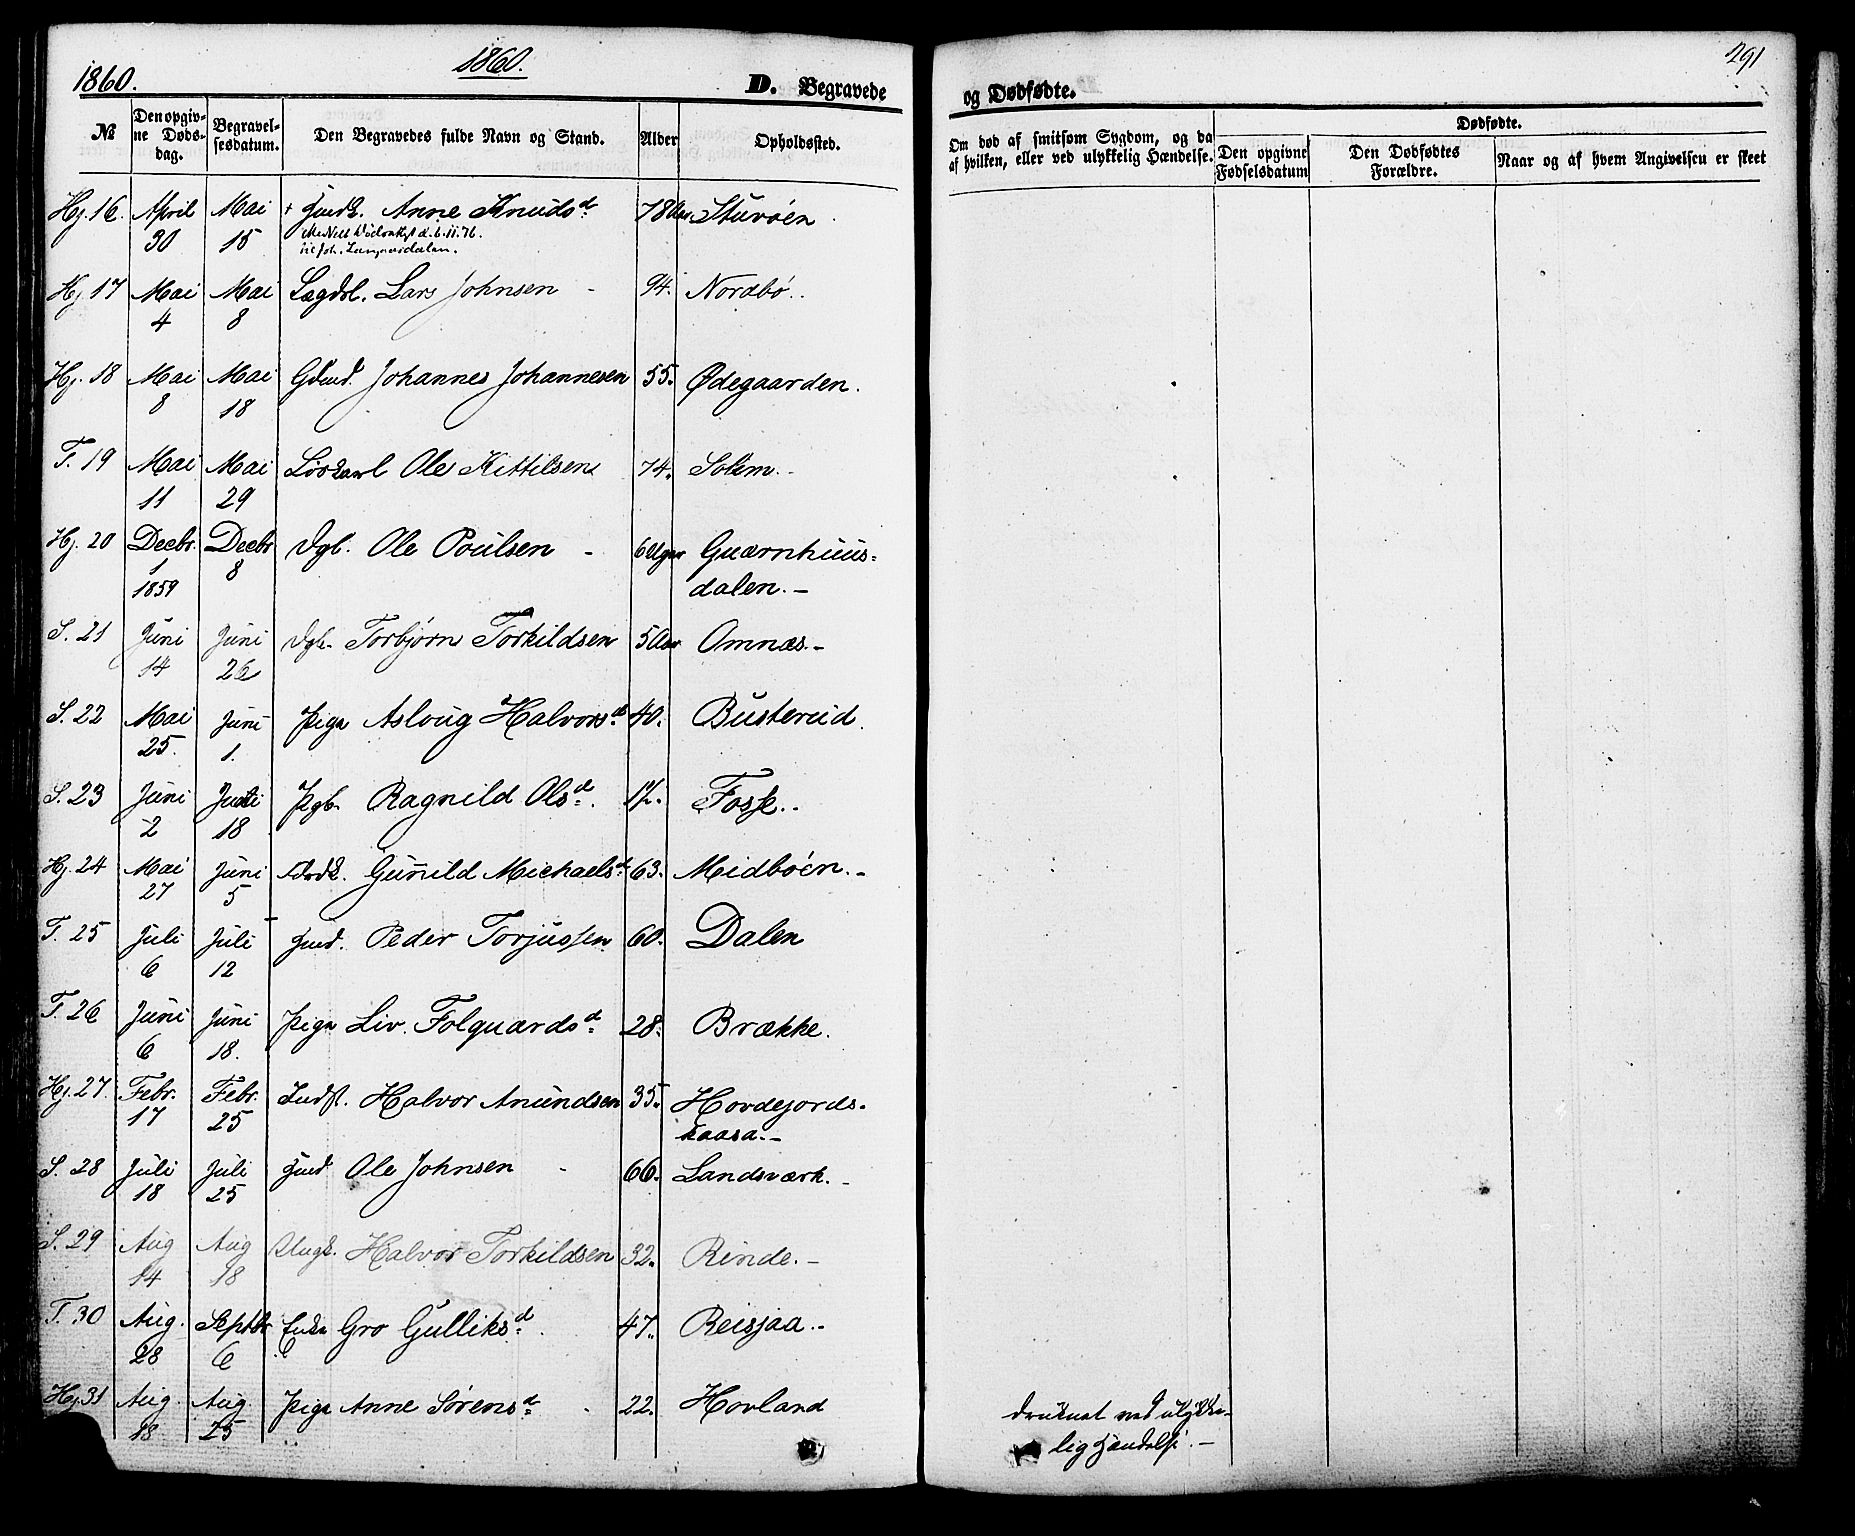 1860.
1860.
D. Begravede
№
Den opgiv-
ne Døds-
dag.
Begravel-
sesdatum.
Den Begravedes fulde Navn og Stand.
Alder
Opholdssted.
Hj. 16. April 30 Mai 15 Anne Knudsd. 78 Aar Stuvøen.
Hj. 17 Mai 4 Mai 8 Lægdsl. Lars Johnsen - 94. Nordbø..
Hj. 18 Mai 8 Mai 18 Gdmd. Johannes Johannesen 55. Ødegaarden.
T. 19 Mai 11 Mai 29 Løskarl Ole Kittilsen 74. Solem.-
Hj. 20 Decbr. 1 1859 Decbr 8 Dgb. Ole Poulsen - 6 Uger Quærnhuus=
dalen.-
S. 21 Juni 14 Juni 26 Dgb. Torbjørn Torkildsen 5 Aar Omnæs.-
S. 22 Mai 25. Juni 1. Pige Asloug Halvorsd. 40. Busterud.
S. 23 Juni 2 Juni 18 Pgb. Ragnild Olsd. 17. Fosse..
Hj. 24 Mai 27 Juni 5 Gunild Michaelsd. 63. Midbøen.-
T. 25 Juli 6 Juli 12 Gmd. Peder Torjussen 60. Dalen
T. 26 Juni 6 Juni 18. Pige Liv. Folquardsd. 28. Brække.
Hj. 27. Febr. 17 Febr. 25 Indst. Halvor Anundsen 35. Hovdejords-
kaasa.-
S. 28 Juli 18 Juli 25 Gmd Ole Johnsen - 66. Landsværk.-
S. 29 Aug 14 Aug 18 Ungk. Halvor Torkildsen 32. Rinde.-
T. 30 Aug. 28 Septbr 6 Enke Gro Gulliksd. 47. Reisjaa.-
Hj. 31 Aug. 18 Aug. 25 Pige Anne Sørensd. - 22. Hovland
291
og Dødfødte.
Om død af smitsom Sygdom, og da
af hvilken, eller ved ulykkelig Hændelse.
Dødfødte.
Den opgivne
Fødselsdatum
Den Dødfødtes
Forældre.
Naar og af hvem Angivelsen er skeet
druknet ved ulykke-
lig Hændelse.-